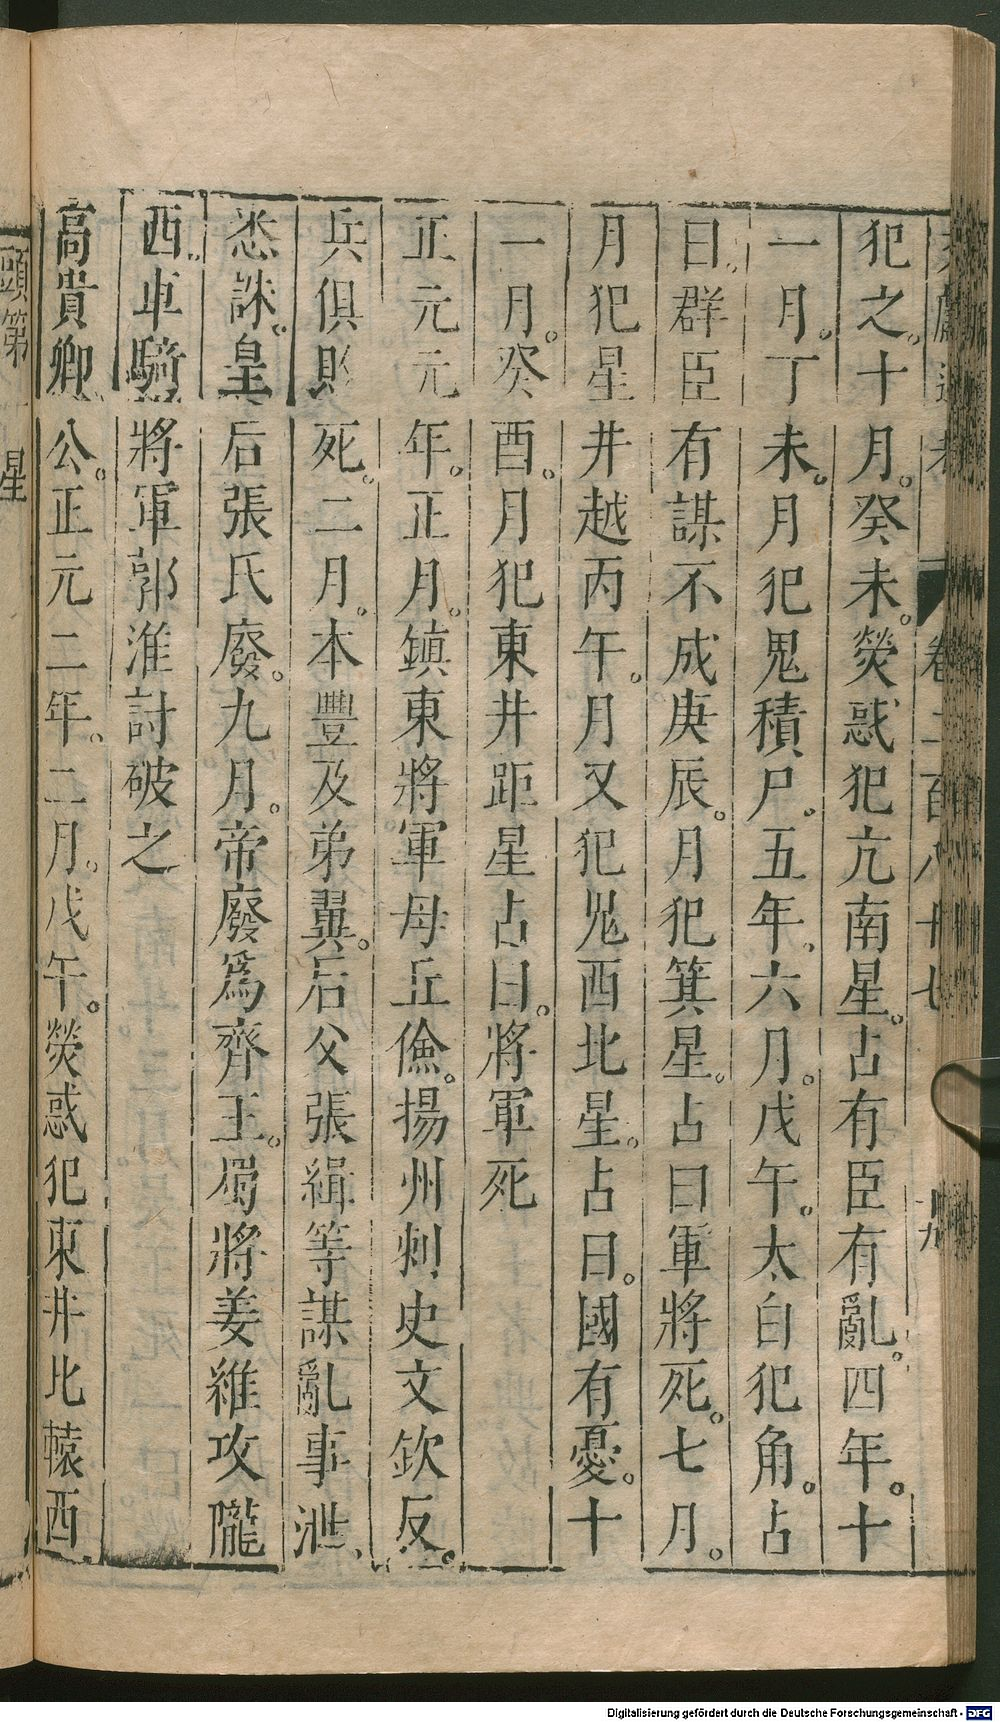 文獻通考 卷二百八十七 十九
犯之。十月。癸未。熒惑犯亢南星。占有臣有亂。四年。十
一月。丁未。月犯鬼積尸。五年。六月。戊午。太白犯角。占
曰。群臣有謀不成庚辰。月犯箕星。占曰軍將死。七月。
月犯星井越丙午。月又犯鬼西北星。占曰。國有憂。十
一月。癸酉。月犯東井距星占曰。將軍死
正元元年。正月。鎮東將軍母丘儉。揚州刺史文欽反。
兵俱敗死。二月。本豐及弟翼。后父張緝等謀亂事泄、
悉誅。皇后張氏廢。九月。帝廢爲齊王。蜀將姜維攻隴
西。車騎將軍郭淮討破之
高貴卿公。正元二年。二月。戊午。熒惑犯東井北轅西
頭第 星
Digitalisierung gefördert durch die Deutsche Forschungsgemeinschaft - DFG